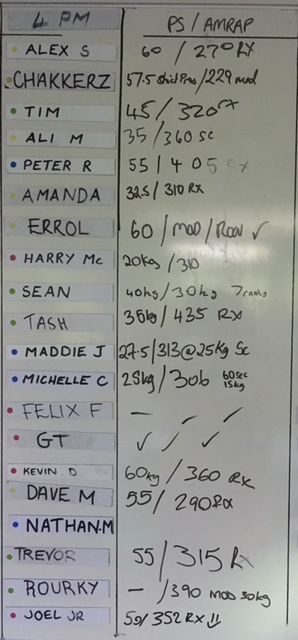 4 PM PS / AMRAP
ALEX S 60 / 270 RX
CHAKKERZ 57.5 Strict Press / 229 mod
TIM 45 / 320 rx
ALI M 35 / 360 SC
PETER R 55 / 405 RX
AMANDA 32.5 / 310 RX
ERROL 60 / MOD / ROW ✓
HARRY Mc 20kgs / 310
SEAN 40kg / 30kg 7
TASH 35kg / 435 RX
MADDIE J 27.5 / 313 @ 25kg Sc
MICHELLE C 25kg / 306 60sec 15kg
FELIX F — / /
GT ✓ / ✓
KEVIN D 60kg / 360 RX
DAVE M 55 / 290 RX
NATHAN.M
TREVOR 55 / 315 RX
ROURKY — / 390 MOD 30kg
JOEL JR 50 / 352 RX !!